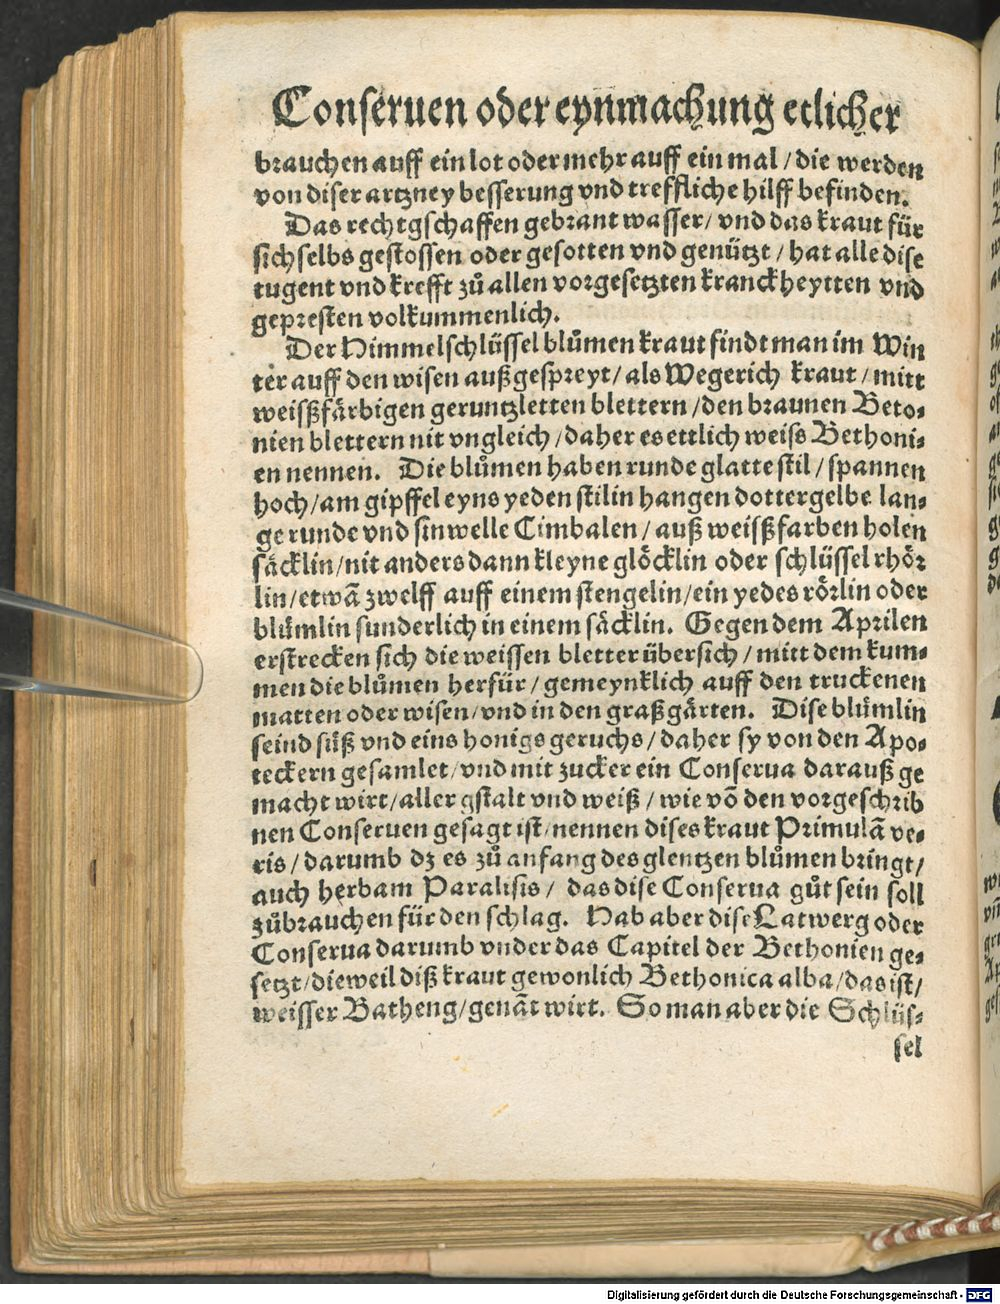 Conseruen oder eynmachung etlicher
brauchen auff ein lot oder mehr auff ein mal / die werden
von diser artzney besserung vnd treffliche hilff befinden.
Das rechtgschaffen gebrant wasser / vnd das kraut für
sich selbs gestossen oder gesotten vnd genützt / hat alle dise
tugent vnd krefft zů allen vorgesetzten kranckheytten vnd
gepresten volkummenlich.
Der Himmelschlüssel blůmen kraut findt man im Win
ter auff den wisen außgespreyt / als Wegerich kraut / mitt
weißfärbigen geruntzletten blettern / den braunen Beto⸗
nien blettern nit vngleich / daher es ettlich weiß Bethoni⸗
en nennen. Die blůmen haben runde glatte stil / spannen
hoch / am gipffel eyns yeden stilin hangen dottergelbe lan⸗
ge runde vnd sinwelle Cimbalen / auß weißfarben holen
säcklin / nit anders dann kleyne glöcklin oder schlüssel rhör
lin / etwã zwelff auff einem stengelin / ein yedes rörlin oder
blůmlin sunderlich in einem säcklin. Gegen dem Aprilen
erstrecken sich die weissen bletter übersich / mitt dem kum⸗
men die blůmen herfür / gemeynklich auff den truckenen
matten oder wisen / vnd in den graßgärten. Dise blůmlin
seind süß vnd eins honigs geruchs / daher sy von den Apo⸗
teckern gesamlet / vnd mit zucker ein Conserua darauß ge
macht wirt / aller gstalt vnd weiß / wie võ den vorgeschrib
nen Conseruen gesagt ist / nennen dises kraut Primulã ve⸗
ris / darumb dz es zů anfang des glentzen blůmen bringt /
auch herbam Paralisis / das dise Conserua gůt sein soll
zůbrauchen für den schlag. Hab aber dise Latwerg oder
Conserua darumb vnder das Capitel der Bethonien ge⸗
setzt / dieweil diß kraut gewonlich Bethonica alba / das ist /
weisser Batheng / genãt wirt. So man aber die Schlüs⸗
sel
Digitalisierung gefördert durch die Deutsche Forschungsgemeinschaft - DFG